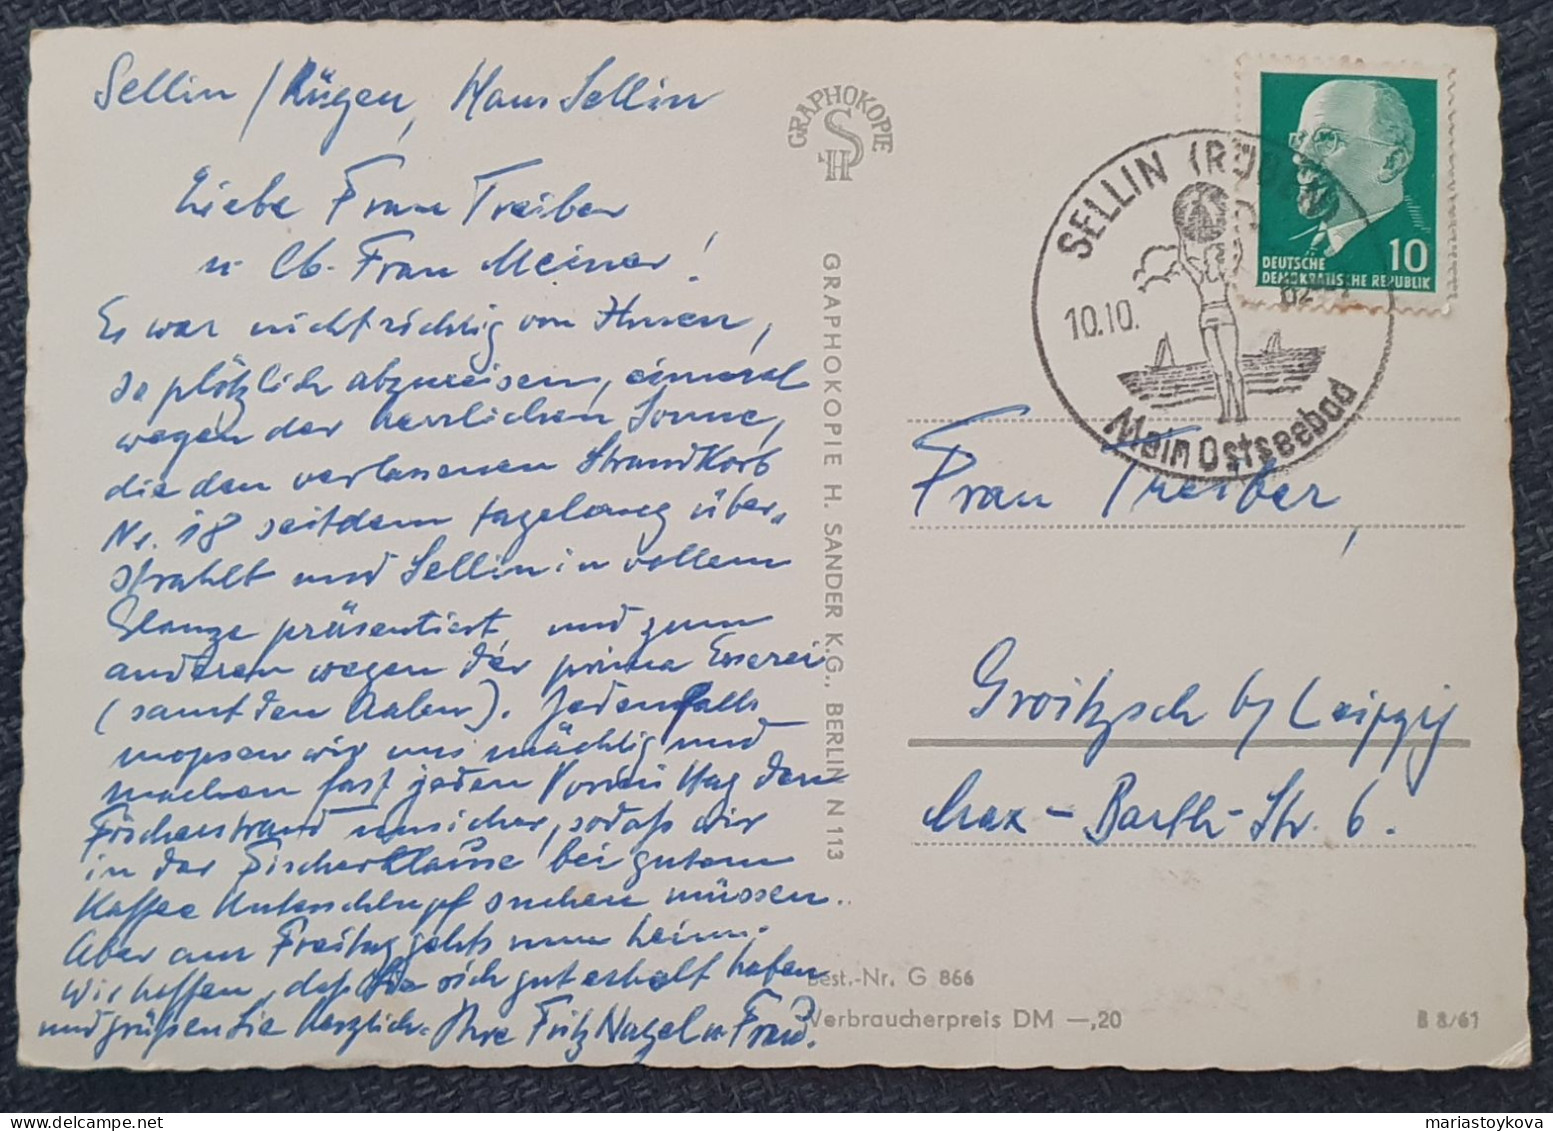 Sellin / Rügen, Haus Sellin
Liebe Frau Treiber
u. lb. Frau Meiner!
Es war nicht richtig von Ihnen,
so plötzlich abzureisen, einmal
wegen der herrlichen Sonne,
die den verlassenen Strandkorb
Nr. 18 seitdem tagelang über-
strahlt und Sellin in vollem
Glanze präsentiert, und zum
anderen wegen der prima Esserei
(samt den Aalen). Jedenfalls
mopsen wir uns mächtig und
machen fast jeden Vormittag den
Fischerstrand unsicher, sodaß wir
in der Fischerklause bei gutem
Kaffee Unterschlupf suchen müssen.
Aber am Freitag gehts nun heim.
Wir hoffen, daß Sie sich gut erholt haben
und grüßen Sie herzlich. Ihre Fritz Nagel u. Frau.
GRAPHOKOPIE
HS
GRAPHOKOPIE H. SANDER K.G., BERLIN N 113
SELLIN (RÜGEN)
10.10.
Mein Ostseebad
10
DEUTSCHE
DEMOKRATISCHE REPUBLIK
Frau Treiber,
Groitzsch b/ Leipzig
Max-Barth-Str. 6.
Best.-Nr. G 866
Verbraucherpreis DM —,20
B 8/61
mariastoykova